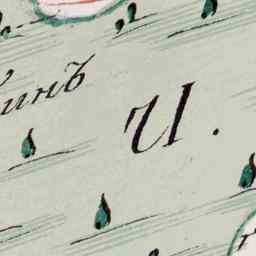 инъ
И.